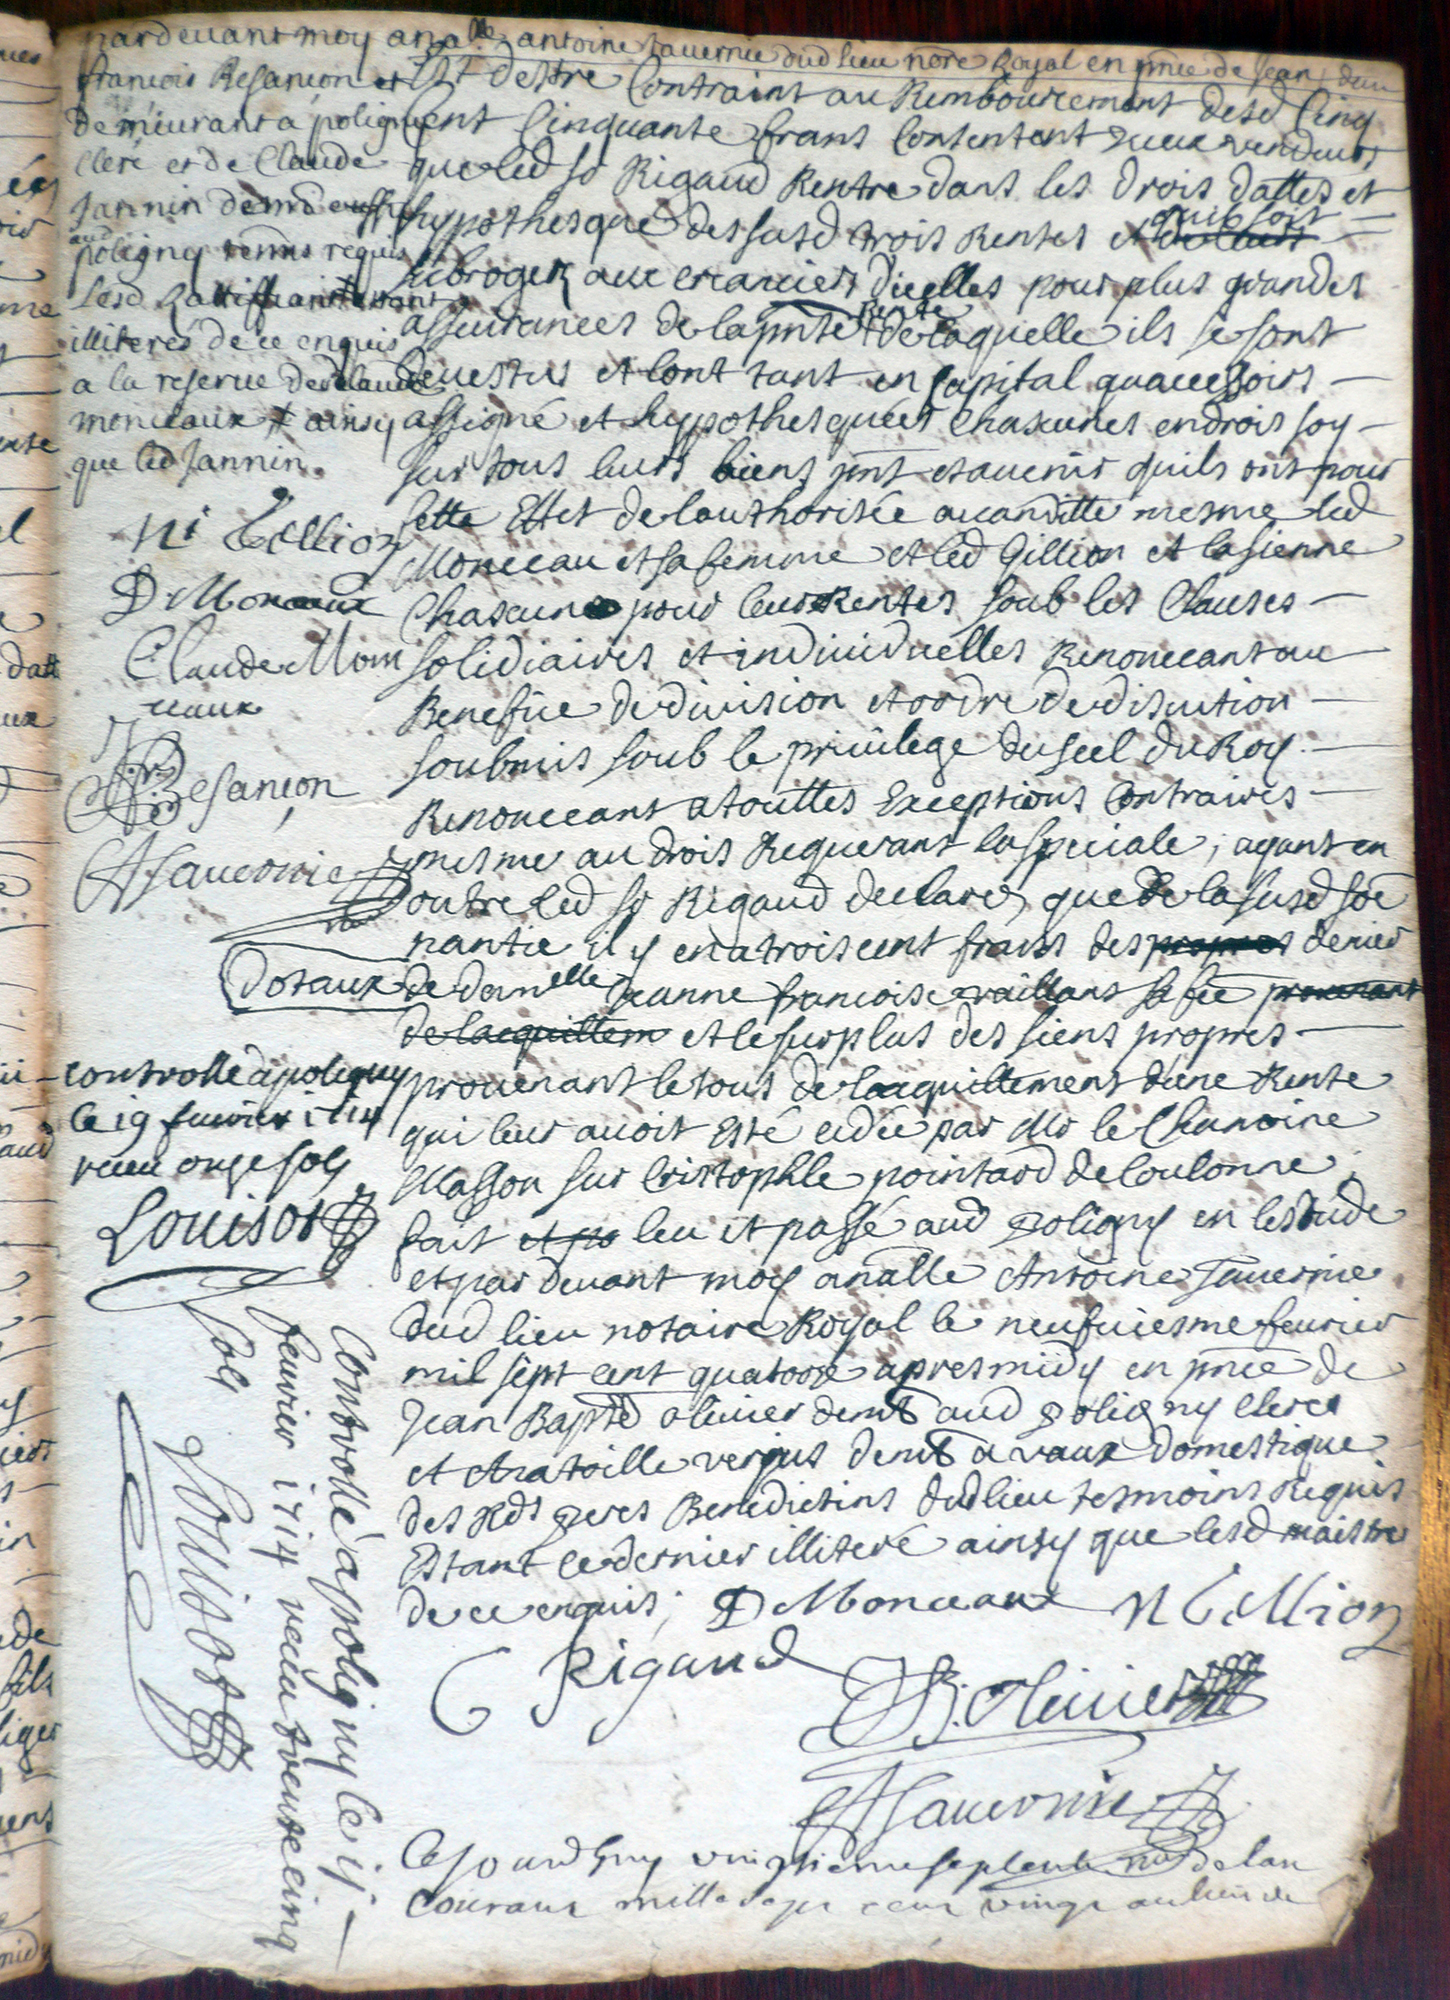 pardevant moy anable antoine tavernie dud lieu nore Royal en pnce de Jean
francois Besançon et
demeurant a poligny
clerc et de Claude
Jannin dem
aud
poligny temns requis
Lesd Rattiffiants estant
illiterés de ce enquis
a la reserve des Claude
monceaux # ainsy
que led Jannin.
N Gillion
D Monceaux
Claude Mon
ceaux
Besançon
ATavernie
dotaux
controllé a poligny
le 19 fevrier 1714
receu onze sols
Louisot
Controllé a poligny le ij
fevrier 1714 receu trente cinq
sols Louisot
destre Contraint au Rembourcement desd Cinq
cent Cinquante frans Consentent yceux vendeurs
que led sr Rigaud Rentre dans les drois dattes et
hypothesque des susd trois Rentes et quil soit
subroger aux creanciers dicelles pour plus grandes
asseurances de la pnte Rente de laquelle ils se sont
devestus et lont tant en Capital quaccessoirs
assigné et hypothesquées chascunes endrois soy
sur tous leurs biens pnt et avenir quils ont pour
cette Effet de lauthorisée avanditte mesme led
Monceau et sa femme et led Gillion et la sienne
Chascune pour leurs Rentes soub les Clauses
solidiaires et individuelles Renonceant au
Benefice de division et ordre de discution
soubmis soub le privilege du scel du Roy.
Renonceant a touttes Exceptions Contraires
mesme au drois Requerant la speciale; ayant en
outre led sr Rigaud declaré que de la susd soe
nantie il y en a trois cent frans des propres denier
de damelle Jeanne francoise vaillant sa fee provenant
de lacquittem et le surplus des siens propres
provenant le tous de lacquittement dune Rente
qui leur avoit Esté cedée par Mr le Chanoine
Masson sur Cristophle pointard de Coulonne;
fait et pa leu et passé aud Poligny en lestude
et par devant moy anable Antoine Tavernie
dud lieu notaire Royal le neufviesme fevrier
mil sept cent quatorze apres midy en pnce de
Jean Bapte Olivier demt aud Poligny clerc
et Anatoille verjus demt a vaux domestique
des Rds peres Benedictins dud lieu tesmoins Requis
Estant ce dernier illiteré ainsy que lesd maistre
de ce enquis; D Monceaux N Gillion
C Rigaud
JB. Olivier
ATavernie
Cejourdhuy vingtieme septembre de lan
Courant mille sept cent vingt au lieu de